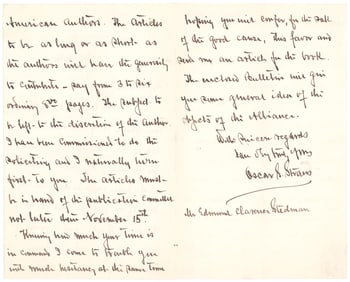 American Authors. The Articles
to be as long or as short as
the authors will have the generosity
to contribute - say from 3 to six
ordinary 8vo pages. The subject to
be left to the discretion of the Author.
I have been Commissioned to do the
soliciting and I naturally turn
first to you. The articles must
be in hands of the publication committee
not later than November 15th.
Knowing how much your time is
in command I come to trouble you
with much hesitancy at the same time
hoping you will confer, for the sake
of the good cause, this favor and
send me an article for the book.
The enclosed Bulletin will give
you some general idea of the
objects of the Alliance.
With sincere regards
I am very truly yours
Oscar S. Straus
Mr Edmund Clarence Stedman